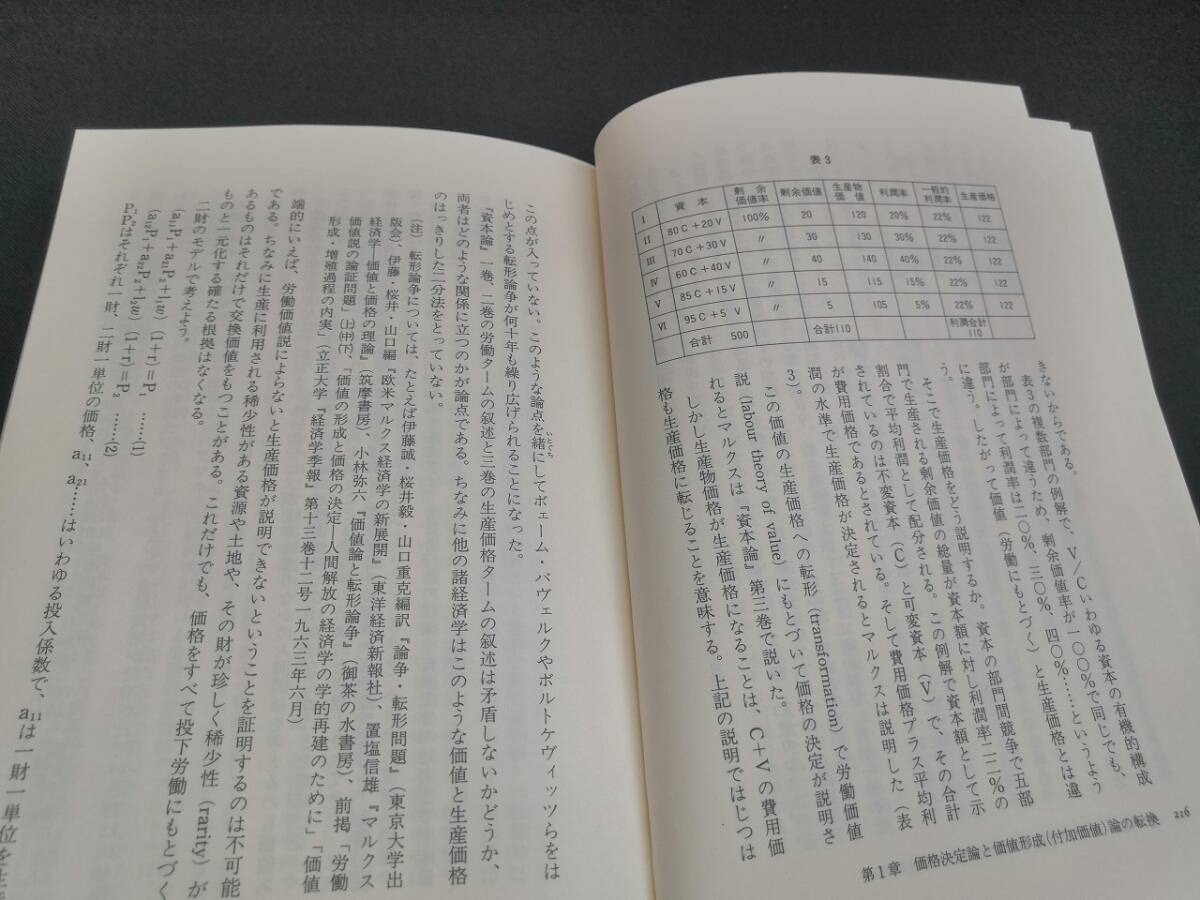 216
第1章　価格決定論と価値形成(付加価値)論の転換
表3
Ⅰ 資本 剰余価値率 剰余価値 生産物価値 利潤率 一般的利潤率 生産価格
Ⅱ 80C+20V 100% 20 120 20% 22% 122
Ⅲ 70C+30V 〃 30 130 30% 22% 122
Ⅳ 60C+40V 〃 40 140 40% 22% 122
Ⅴ 85C+15V 〃 15 115 15% 22% 122
Ⅵ 95C+5V 〃 5 105 5% 22% 122
合計 500 合計110 利潤合計110
きないからである。
表3の複数部門の例解で、V／Cいわゆる資本の有機的構成
が部門によって違うため、剰余価値率が一〇〇%で同じでも、
部門によって利潤率は二〇%、三〇%、四〇%……というよう
に違う。したがって価値（労働にもとづく）と生産価格とは違
う。
そこで生産価格をどう説明するか。資本の部門間競争で五部
門で生産される剰余価値の総量が資本額に対し利潤率二二%の
割合で平均利潤として配分される。この例解で資本額として示
されているのは不変資本（C）と可変資本（V）で、その合計
が費用価格であるとされている。そして費用価格プラス平均利
潤の水準で生産価格が決定されるとマルクスは説明した（表
3）。
この価値の生産価格への転形（transformation）で労働価値
説（labour theory of value）にもとづいて価格の決定が説明さ
れるとマルクスは『資本論』第三巻で説いた。
しかし生産物価格が生産価格になることは、C＋Vの費用価
格も生産価格に転じることを意味する。上記の説明ではじつは
この点が入っていない。このような論点を緒いとぐちにしてボェーム・バヴェルクやボルトケヴィッツらをは
じめとする転形論争が何十年も繰り広げられることになった。
『資本論』一巻、二巻の労働タームの叙述と三巻の生産価格タームの叙述は矛盾しないかどうか、
両者はどのような関係に立つのかが論点である。ちなみに他の諸経済学はこのような価値と生産価格
のはっきりした二分法をとっていない。
（注）転形論争については、たとえば伊藤誠・桜井毅・山口重克編訳『論争・転形問題』（東京大学出
版会）、伊藤・桜井・山口編『欧米マルクス経済学の新展開』（東洋経済新報社）、置塩信雄『マルクス
経済学―価値と価格の理論』（筑摩書房）、小林弥六『価値論と転形論争』（御茶の水書房）、前掲「労働
価値説の論証問題」（上）（中）（下）、「価値の形成と価格の決定―人間解放の経済学の学的再建のために」「価値
形成・増殖過程の内実」（立正大学『経済学季報』第十三巻十二号一九六三年六月）
端的にいえば、労働価値説によらないと生産価格が説明できないということを証明するのは不可能
である。ちなみに生産に利用される稀少性がある資源や土地や、その財が珍しく稀少性（rarity）が
あるものはそれだけで交換価値をもつことがある。これだけでも、価格をすべて投下労働にもとづく
ものと一元化する確たる根拠はなくなる。
二財のモデルで考えよう。
(a₁₁P₁+a₂₁P₂+l₁w) (1+r)=P₁ ……(1)
(a₁₂P₁+a₂₂P₂+l₂w) (1+r)=P₂ ……(2)
P₁P₂はそれぞれ一財、二財一単位の価格、a₁₁、a₂₁……はいわゆる投入係数で、a₁₁は一財一単位を生